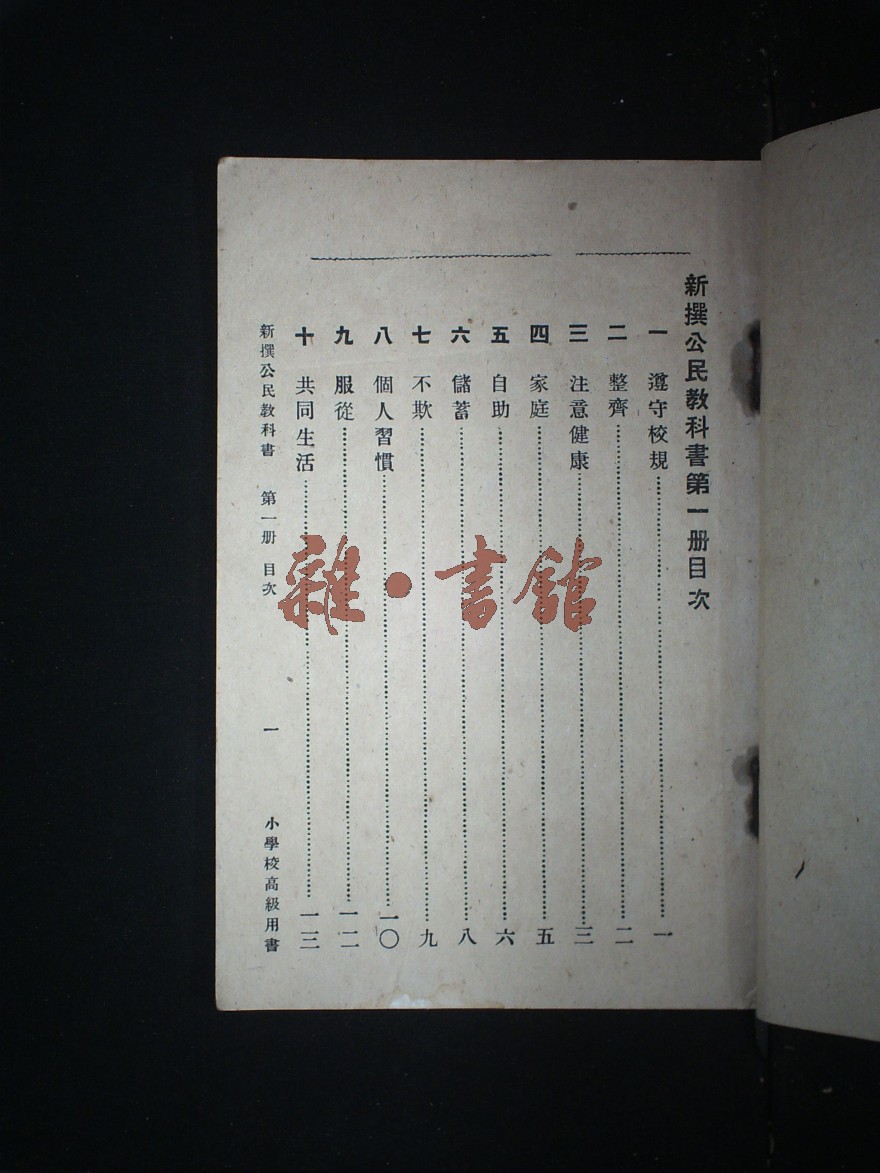 新撰公民教科書第一册目次
一 遵守校規 一
二 整齊 二
三 注意健康 三
四 家庭 五
五 自助 六
六 儲蓄 八
七 不欺 九
八 個人習慣 一〇
九 服從 一二
十 共同生活 一三
新撰公民教科書 第一册 目次 一 小學校高級用書
雜·書館